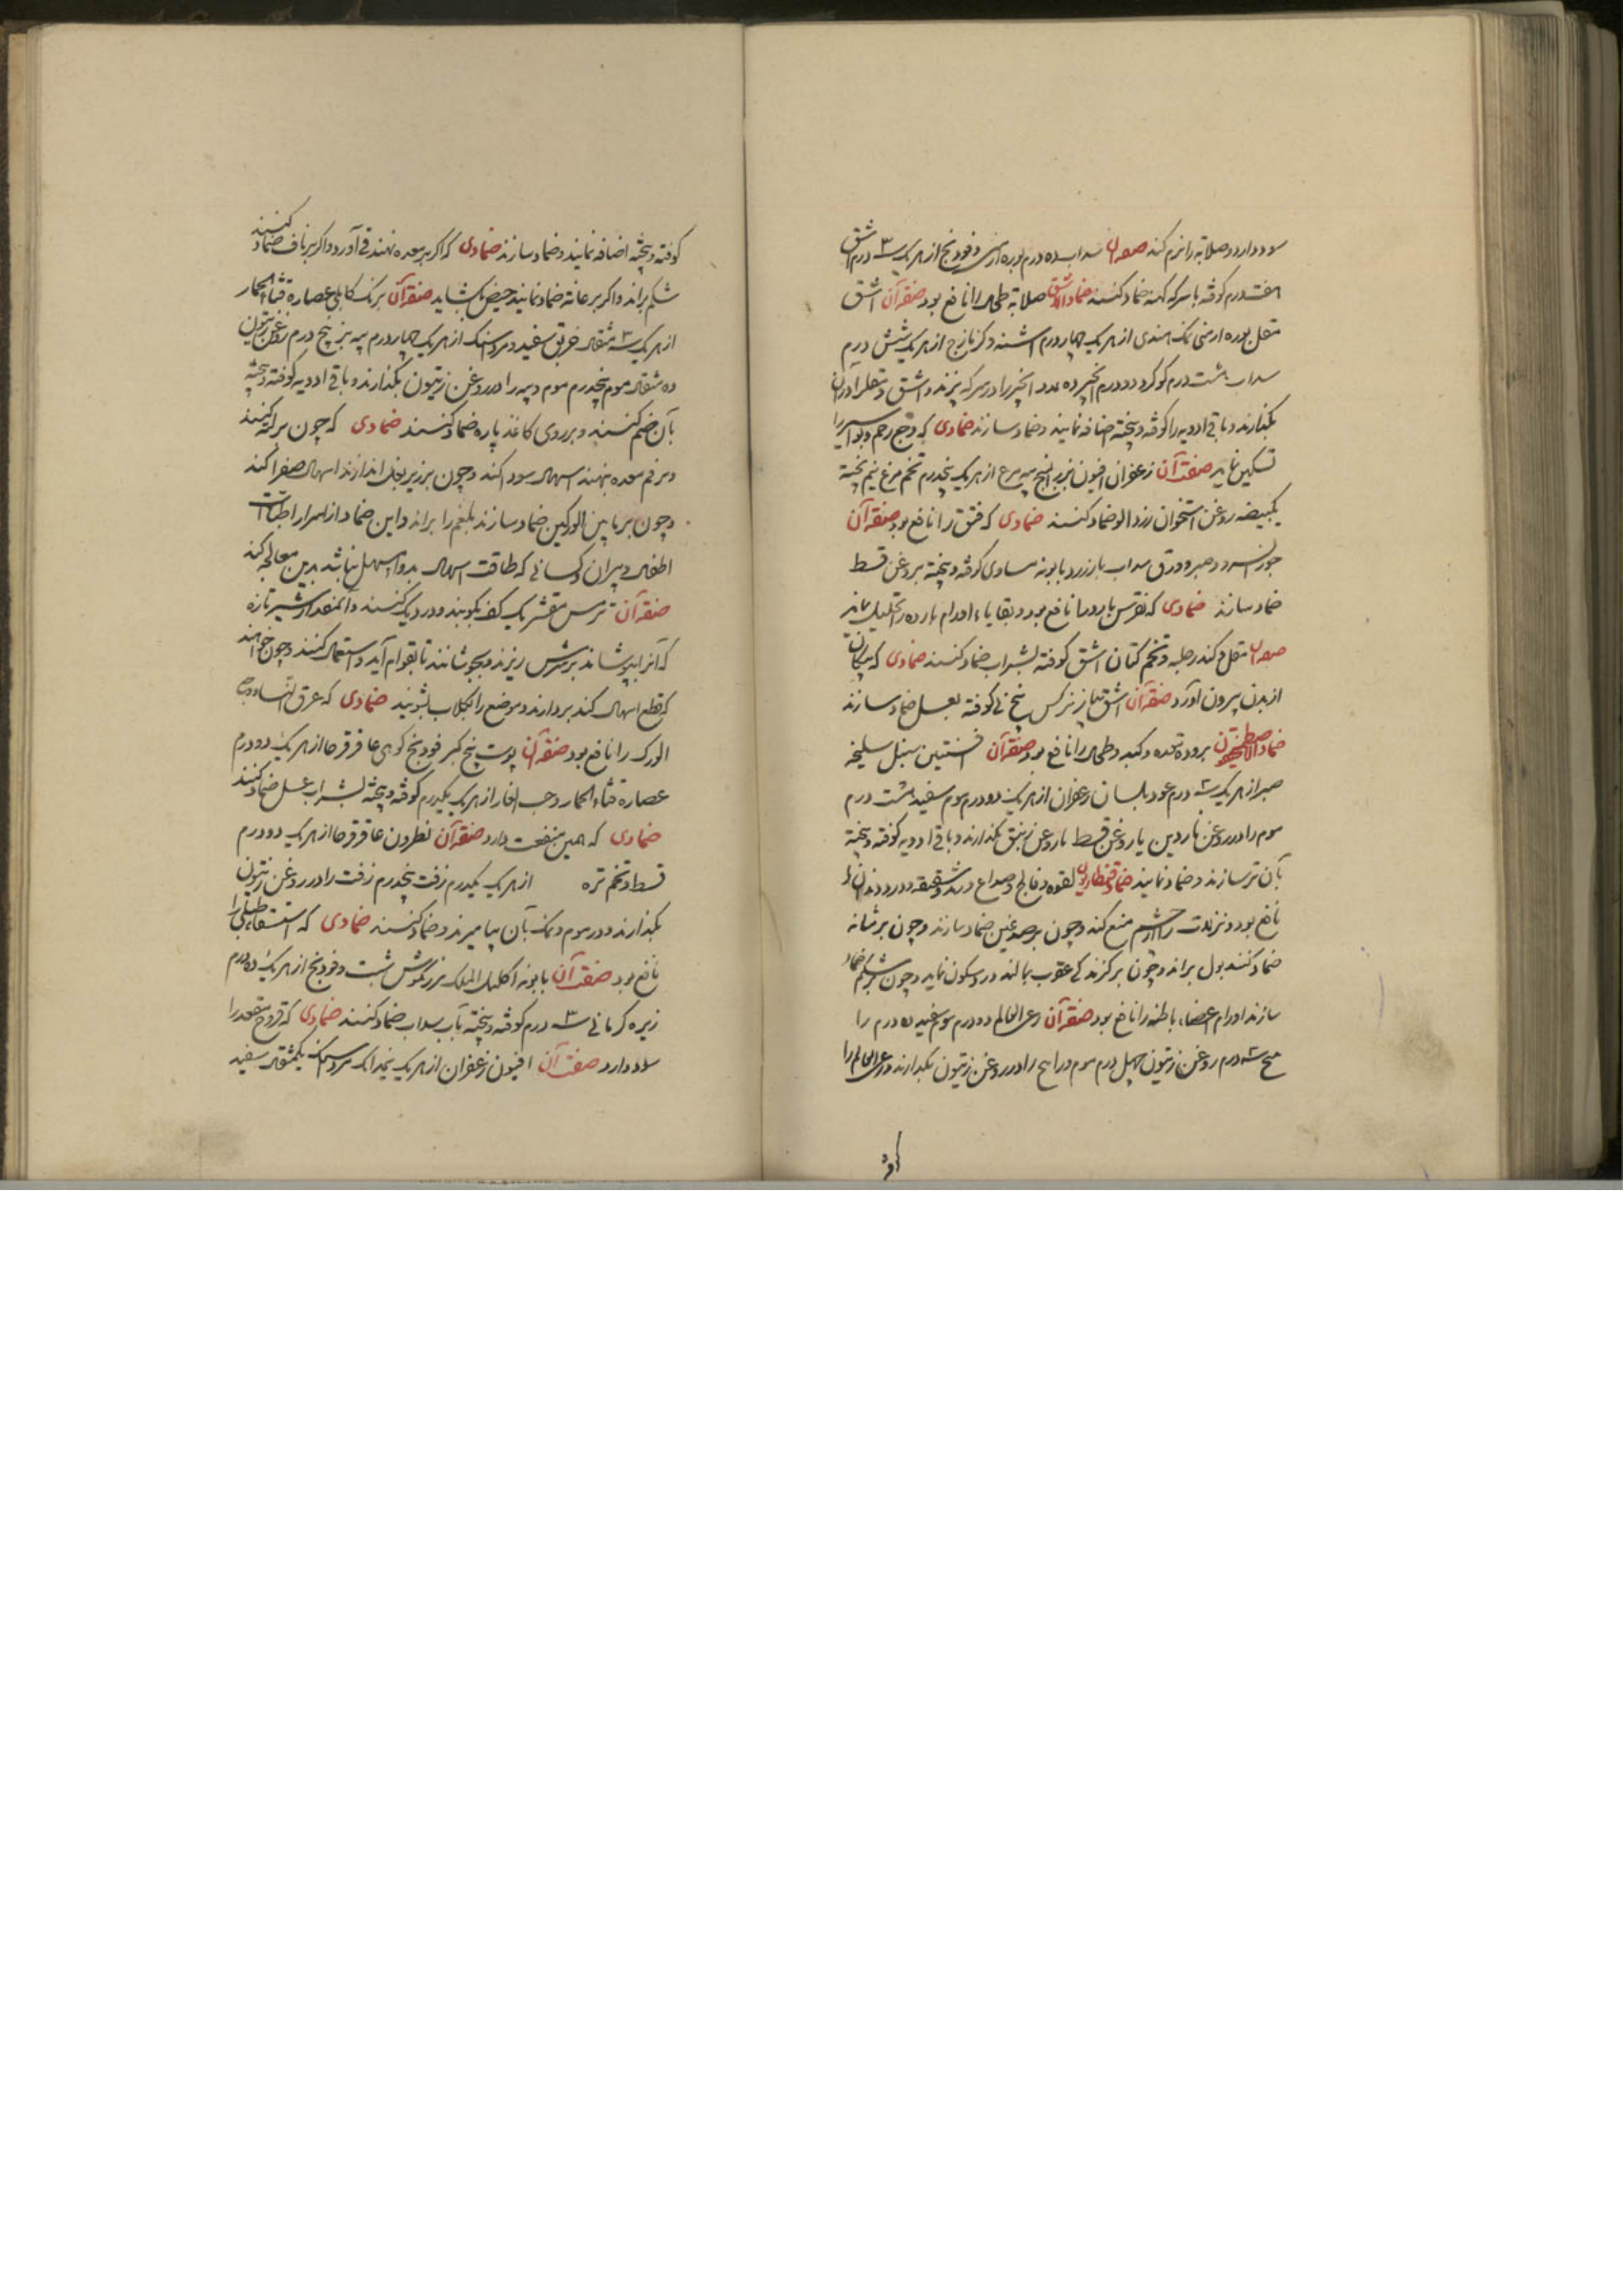 سود دارد و صلابة را نرم کند صفة آن سداب ده درم بوره ارمنی و فودنج از هر یک ۳ درم اشق
هفت درم کوفته با سرکه کهنه ضماد کنند ضماد الاشق صلابة طحال را نافع بود صفة آن اشق
مقل بوره ارمنی نمک هندی از هر یک چهار درم اشنه و کزمازج از هر یک شش درم
سداب هشت درم کوکرد دو درم انجیر ده عدد انجیر را در سرکه پزند و اشق و مقل را در آن
بکدازند و باقی ادویه را کوفته و پخته اضافه نمایند و ضماد سازند ضمادی که وجع رحم و بواسیر را
تسکین نماید صفت آن زعفران افیون بزر البنج پیه مرغ از هر یک پنجدرم تخم مرغ نیم پخته
یکبیضه روغن استخوان زردالو ضماد کنند ضمادی که فتق را نافع بود صفة آن
جوز السرو و صبر و ورق سداب بارزد و بابونه مساوی کوفته و پخته بروغن قسط
ضماد سازند ضمادی که نقرس بارد را نافع بود و بقایاء اورام بارده را تحلیل نماید
صفة آن مقل و کندر حلبه و تخم کتان اشق کوفته بشراب ضماد کنند ضمادی که پیکان
از بدن بیرون آورد صفة آن اشق پیاز نرکس بیخ نی کوفته بعسل ضماد سازند
ضماد الاصطمخیقون برودة معده و کبد و طحال را نافع بود صفة آن افسنتین سنبل سلیخه
صبر از هر یک سه درم عود بلسان زعفران از هر یک دو درم موم سفید هشت درم
موم را در روغن ناردین یا روغن قسط یا روغن زنبق بکدازند و باقی ادویه کوفته و پخته
بآن تر سازند و ضماد نمایند ضماد لقوه و فالج و صداع و شقیقه و درد دندان را
نافع بود و نزلات را از چشم منع کند و چون بر صدغین ضماد سازند و چون بر مثانه
ضماد کنند بول براند و چون بر کزندکی عقرب بمالند درد سکون نماید و چون بر شکم ضماد
سازند اورام اعضاء باطنه را نافع بود صفة آن حی العالم دو درم موم سفید ده درم را
سه درم روغن زیتون چهل درم موم و را در روغن زیتون بکدازند و حی العالم را
کوفته
کوفته و پخته اضافه نمایند و ضماد سازند ضمادی که اکر بر معده نهند قی آورد و اکر بر ناف ضماد کنند
شکم براند و اکر بر عانه ضماد نمایند حیض بکشاید صفة آن برنک کابلی عصاره قثاء الحمار
از هر یک سه مثقال خربق سفید و مرداسنک از هر یک چهار درم پیه بز پنج درم روغن زیتون
ده مثقال موم پنجدرم موم و پیه را در روغن زیتون بکدازند و باقی ادویه کوفته و پخته
بآن ضم کنند و بر روی کاغذ پاره ضماد کنند ضمادی که چون بر کنند
و بر فم معده نهند اسهال سودا کند و چون بر زیر بغل اندازند اسهال صفرا کند
و چون بر مابین الورکین ضماد سازند بلغم را براند و این ضماد از اسرار اطباست
اطفال و پیران و کسانی که طاقت اسهال بدوا مسهل نباشد بدین معالجه کند
صفة آن ترمس مقشر یک کف بکوبند و در دیک کنند و آنمقدار شیر تازه
که آنرا بپوشاند برسرش ریزند و بجوشانند تا بقوام آید و استعمال کنند و چون خواهند
که قطع اسهال کند بردارند و موضع را بکلاب بشویند ضمادی که عرق النساء و وجع
الورک را نافع بود صفة آن پوست بیخ کبر فودنج کوهی عاقرقرحا از هر یک دو درم
عصاره قثاء الحمار و حب الغار از هر یک یکدرم کوفته و پخته بشراب عسل ضماد کنند
ضمادی که همین منفعت دارد صفة آن نطرون عاقرقرحا از هر یک دو درم
قسط و تخم تره از هر یک یکدرم زفت پنجدرم زفت را در روغن زیتون
بکدازند و در موم و نمک بآن بیامیزند و ضماد کنند ضمادی که استسقاء طبلی را
نافع بود صفت آن بابونه اکلیل الملک مرزنکوش شبت و فودنج از هر یک ده درم
زیره کرمانی ۳ درم کوفته و پخته بآب سداب ضماد کنند ضمادی که قروح مقعد را
سود دارد صفت آن افیون زعفران از هر یک نیمدانک مرداسنک یکمثقال سفید